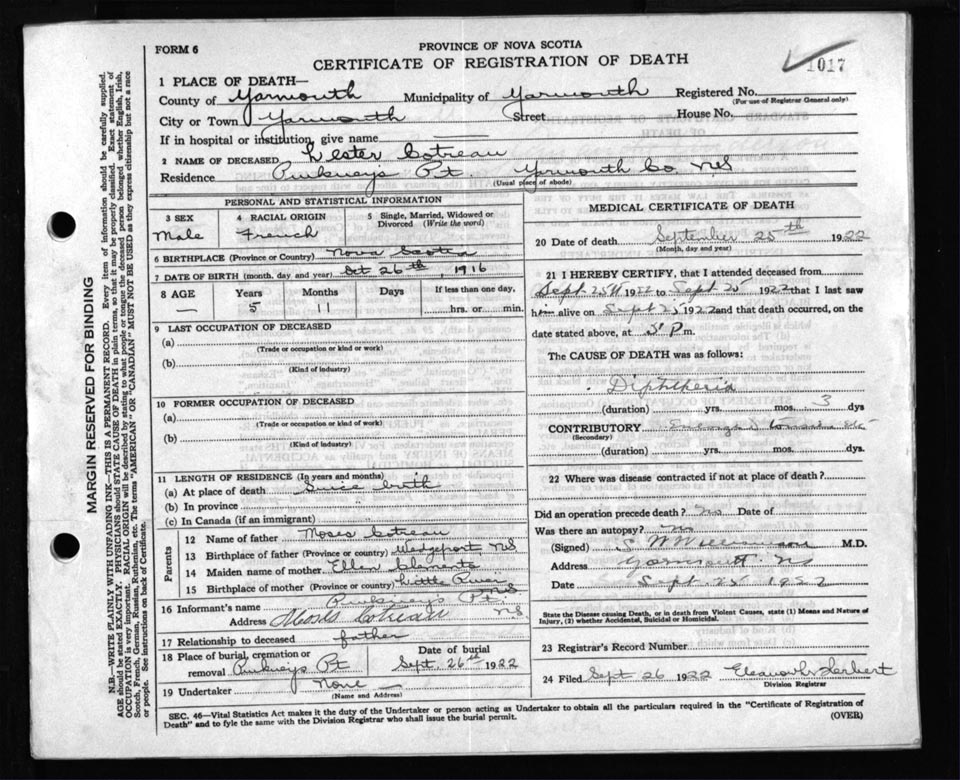 FORM 6
PROVINCE OF NOVA SCOTIA
CERTIFICATE OF REGISTRATION OF DEATH
1017
1 PLACE OF DEATH—
County of Yarmouth Municipality of Yarmouth Registered No.
(For use of Registrar General only)
City or Town Yarmouth Street House No.
If in hospital or institution, give name
2 NAME OF DECEASED Lester Cotreau
Residence Pinkneys Pt. Yarmouth Co. N.S
(Usual place of abode)
PERSONAL AND STATISTICAL INFORMATION
3 SEX
Male
4 RACIAL ORIGIN
French
5 Single, Married, Widowed or
Divorced (Write the word)
6 BIRTHPLACE (Province or Country) Nova Scotia
7 DATE OF BIRTH (month, day, and year) Oct 26th, 1916
8 AGE Years Months Days If less than one day,
— 5 11 hrs. or min.
9 LAST OCCUPATION OF DECEASED
(a)
(Trade or occupation or kind or work)
(b)
(Kind of industry)
10 FORMER OCCUPATION OF DECEASED
(a)
(Trade or occupation or kind or work)
(b)
(Kind of Industry)
11 LENGTH OF RESIDENCE (In years and months)
(a) At place of death Since birth
(b) In province "
(c) In Canada (if an immigrant)
Parents
12 Name of father Moses Cotreau
13 Birthplace of father (Province or country) Wedgeport NS
14 Maiden name of mother Ellen Clements
15 Birthplace of mother (Province or country) Little River NS
16 Informant's name Pinkneys Pt
Address Moses Cotreau N.S
17 Relationship to deceased father
18 Place of burial, cremation or
removal Pinkneys Pt
Date of burial
Sept. 26th 1922
19 Undertaker None
(Name and Address)
MEDICAL CERTIFICATE OF DEATH
20 Date of death September 25th 1922
(Month, day and year)
21 I HEREBY CERTIFY, that I attended deceased from
Sept. 25th 1922 to Sept 25 1922 that I last saw
him alive on Sept 25 1922 and that death occurred, on the
date stated above, at 5 P m.
The CAUSE OF DEATH was as follows:
Diphtheria
(duration) yrs. mos. 3 dys
CONTRIBUTORY
(Secondary)
(duration) yrs. mos. dys.
22 Where was disease contracted if not at place of death?
Did an operation precede death? No Date of
Was there an autopsy? No
(Signed) S W Williamson M.D.
Address Yarmouth NS
Date Sept. 25 1922
State the Disease causing Death, or in death from Violent Causes, state (1) Means and Nature of
Injury, (2) whether Accidental, Suicidal or Homicidal.
23 Registrar's Record Number
24 Filed Sept 26 1922
Division Registrar
SEC. 46—Vital Statistics Act makes it the duty of the Undertaker or person acting as Undertaker to obtain all the particulars required in the "Certificate of Registration of
Death" and to fyle the same with the Division Registrar who shall issue the burial permit.
(OVER)
MARGIN RESERVED FOR BINDING
N.B—WRITE PLAINLY WITH UNFADING INK—THIS IS A PERMANENT RECORD. Every item of information should be carefully supplied.
AGE should be stated EXACTLY. PHYSICIANS should STATE CAUSE OF DEATH in plain terms, so that it may be properly classified. Exact statement of
OCCUPATION is very important. RACIAL ORIGIN will be described by stating to what people or tongue the deceased person belonged whether English, Irish,
Scotch, French, German, Russian, Ruthenian, etc. The terms "AMERICAN" OR "CANADIAN" MUST NOT BE USED as they express citizenship but not a race
or people. See instructions on back of Certificate.